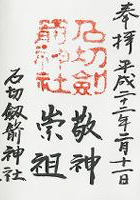 奉拝 平成二十二年一月十一日
石切劔
箭神社
敬神
崇祖
石切劔箭神社